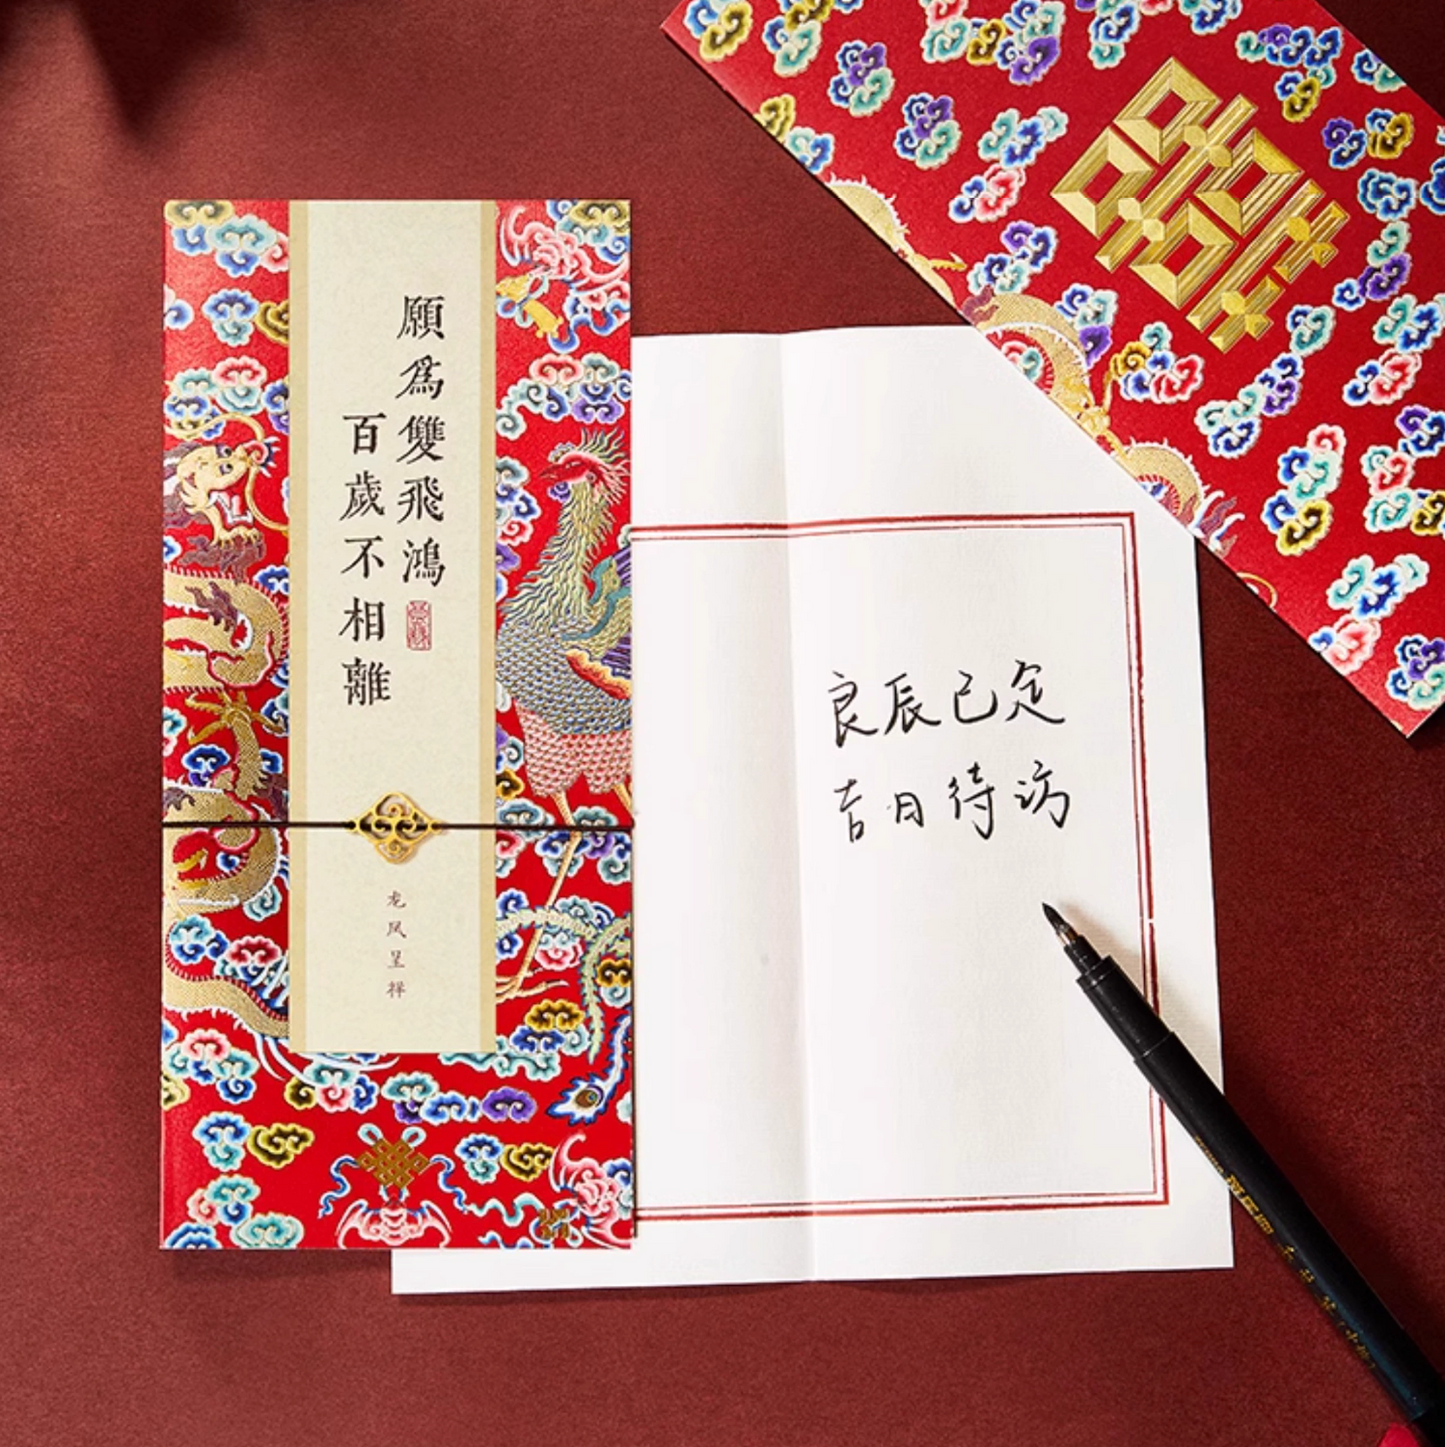 願為雙飛鴻
百歲不相離
龙凤呈祥
良辰已定
吉月待访
囍